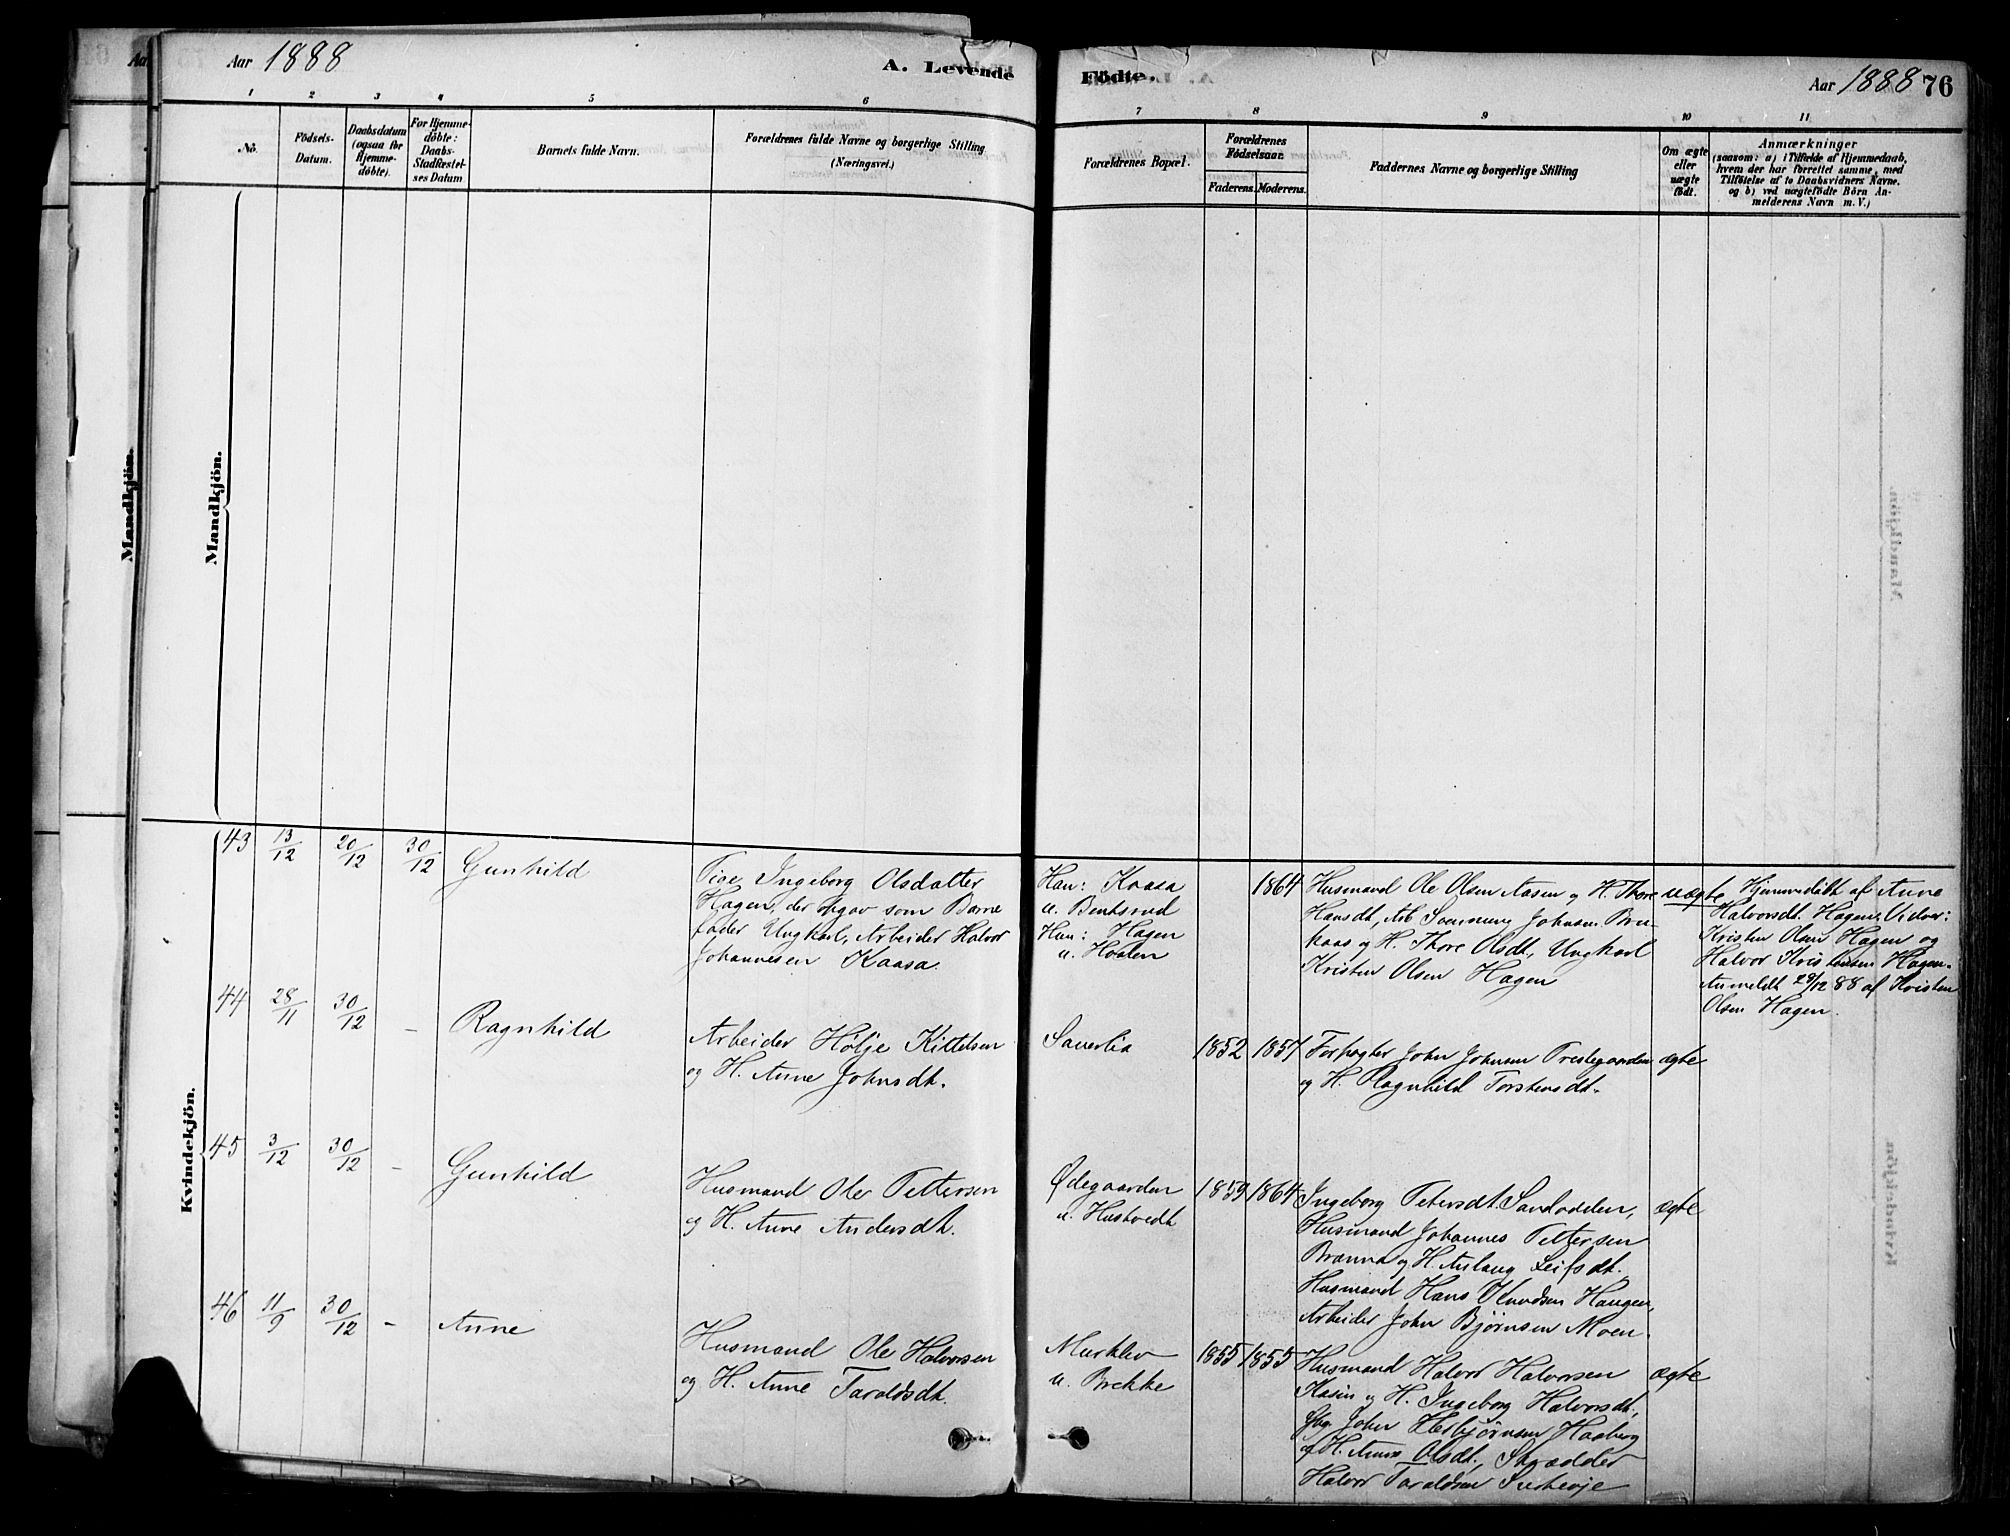 Aar 1888
A. Levende
Födte.
Aar 1888 76
1 2 3 4 5 6 7 8 9 10 11
No.
Födsels-
Datum.
Daabsdatum
(ogsaa for
Hjemme-
döbte).
For Hjemme-
döbte:
Daabs-
Stadfæstel-
ses Datum
Barnets fulde Navn.
Forældrenes fulde Navne og borgerlige Stilling
(Næringsvei.)
Forældrenes Bopæl.
Forældrenes
Födselsaar.
Faderens. Moderens.
Faddernes Navne og borgerlige Stilling
Om ægte
eller
uægte
födt.
Anmærkninger
(saasom: a) i Tilfælde af Hjemmedaab,
hvem der har forrettet samme, med
Tilföielse af to Daabsvidners Navne.
og b) ved uægtefödte Börn An-
melderens Navn m. V.)
Mandkjön.
Mandkjön.
Kvindekjön.
43 13/12 20/12 30/12
Gunhild
Pige Ingeborg Olsdatter
Hagen, der opgav som Barne
fader Ungkarl, Arbeider Halvor
Johannesen Kaasa.
Han: Kaasa
u. Bentsrud
Hun: Hagen
u. Hvalen
1864
Husmand Ole Olsen Aasen og H. Thore
Hansdt, Arb. Johnsen
og H. Thore Olsdt, Ungkarl
Kristen Olsen Hagen
uægte
Hjemmedøbt af Anne
Halvorsdt. Hagen. Vidner:
Kristen Olsen Hagen og
Halvor Kristensen Hagen.
Anmeldt 29/12 88 af Kristen
Olsen Hagen.
44 28/11 30/12 -
Ragnhild
Arbeider Hølje Kittelsen
og H. Anne Johnsdt.
Sauerlia
1852 1857
Forpagter John Johnsen Prestegaarden
og H. Ragnhild Torstensdt.
ægte
45 3/12 30/12 -
Gunhild
Husmand Ole Pettersen
og H. Anne Andersdt.
Ødegaarden
u. Hustvedt
1859 1864
Ingeborg Petersdt. Sanlodden,
Husmand Johannes Pettersen
Brænna og H. Aslaug Leifsdt.
Husmand Hans Knudsen Haugen,
Arbeider John Bjørnsen Moen.
ægte
46 11/9 30/12 -
Anne
Husmand Ole Halvorsen
og H. Anne Taraldsdt.
Murklev
u. Brekke
1855 1855
Husmand Halvor Halvorsen
Kasin og H. Ingeborg Halvorsdt,
Gbr. John Hesbjørnsen Haaberg
og H. Anne Olsdt, Skrædder
Halvor Taraldsen
ægte